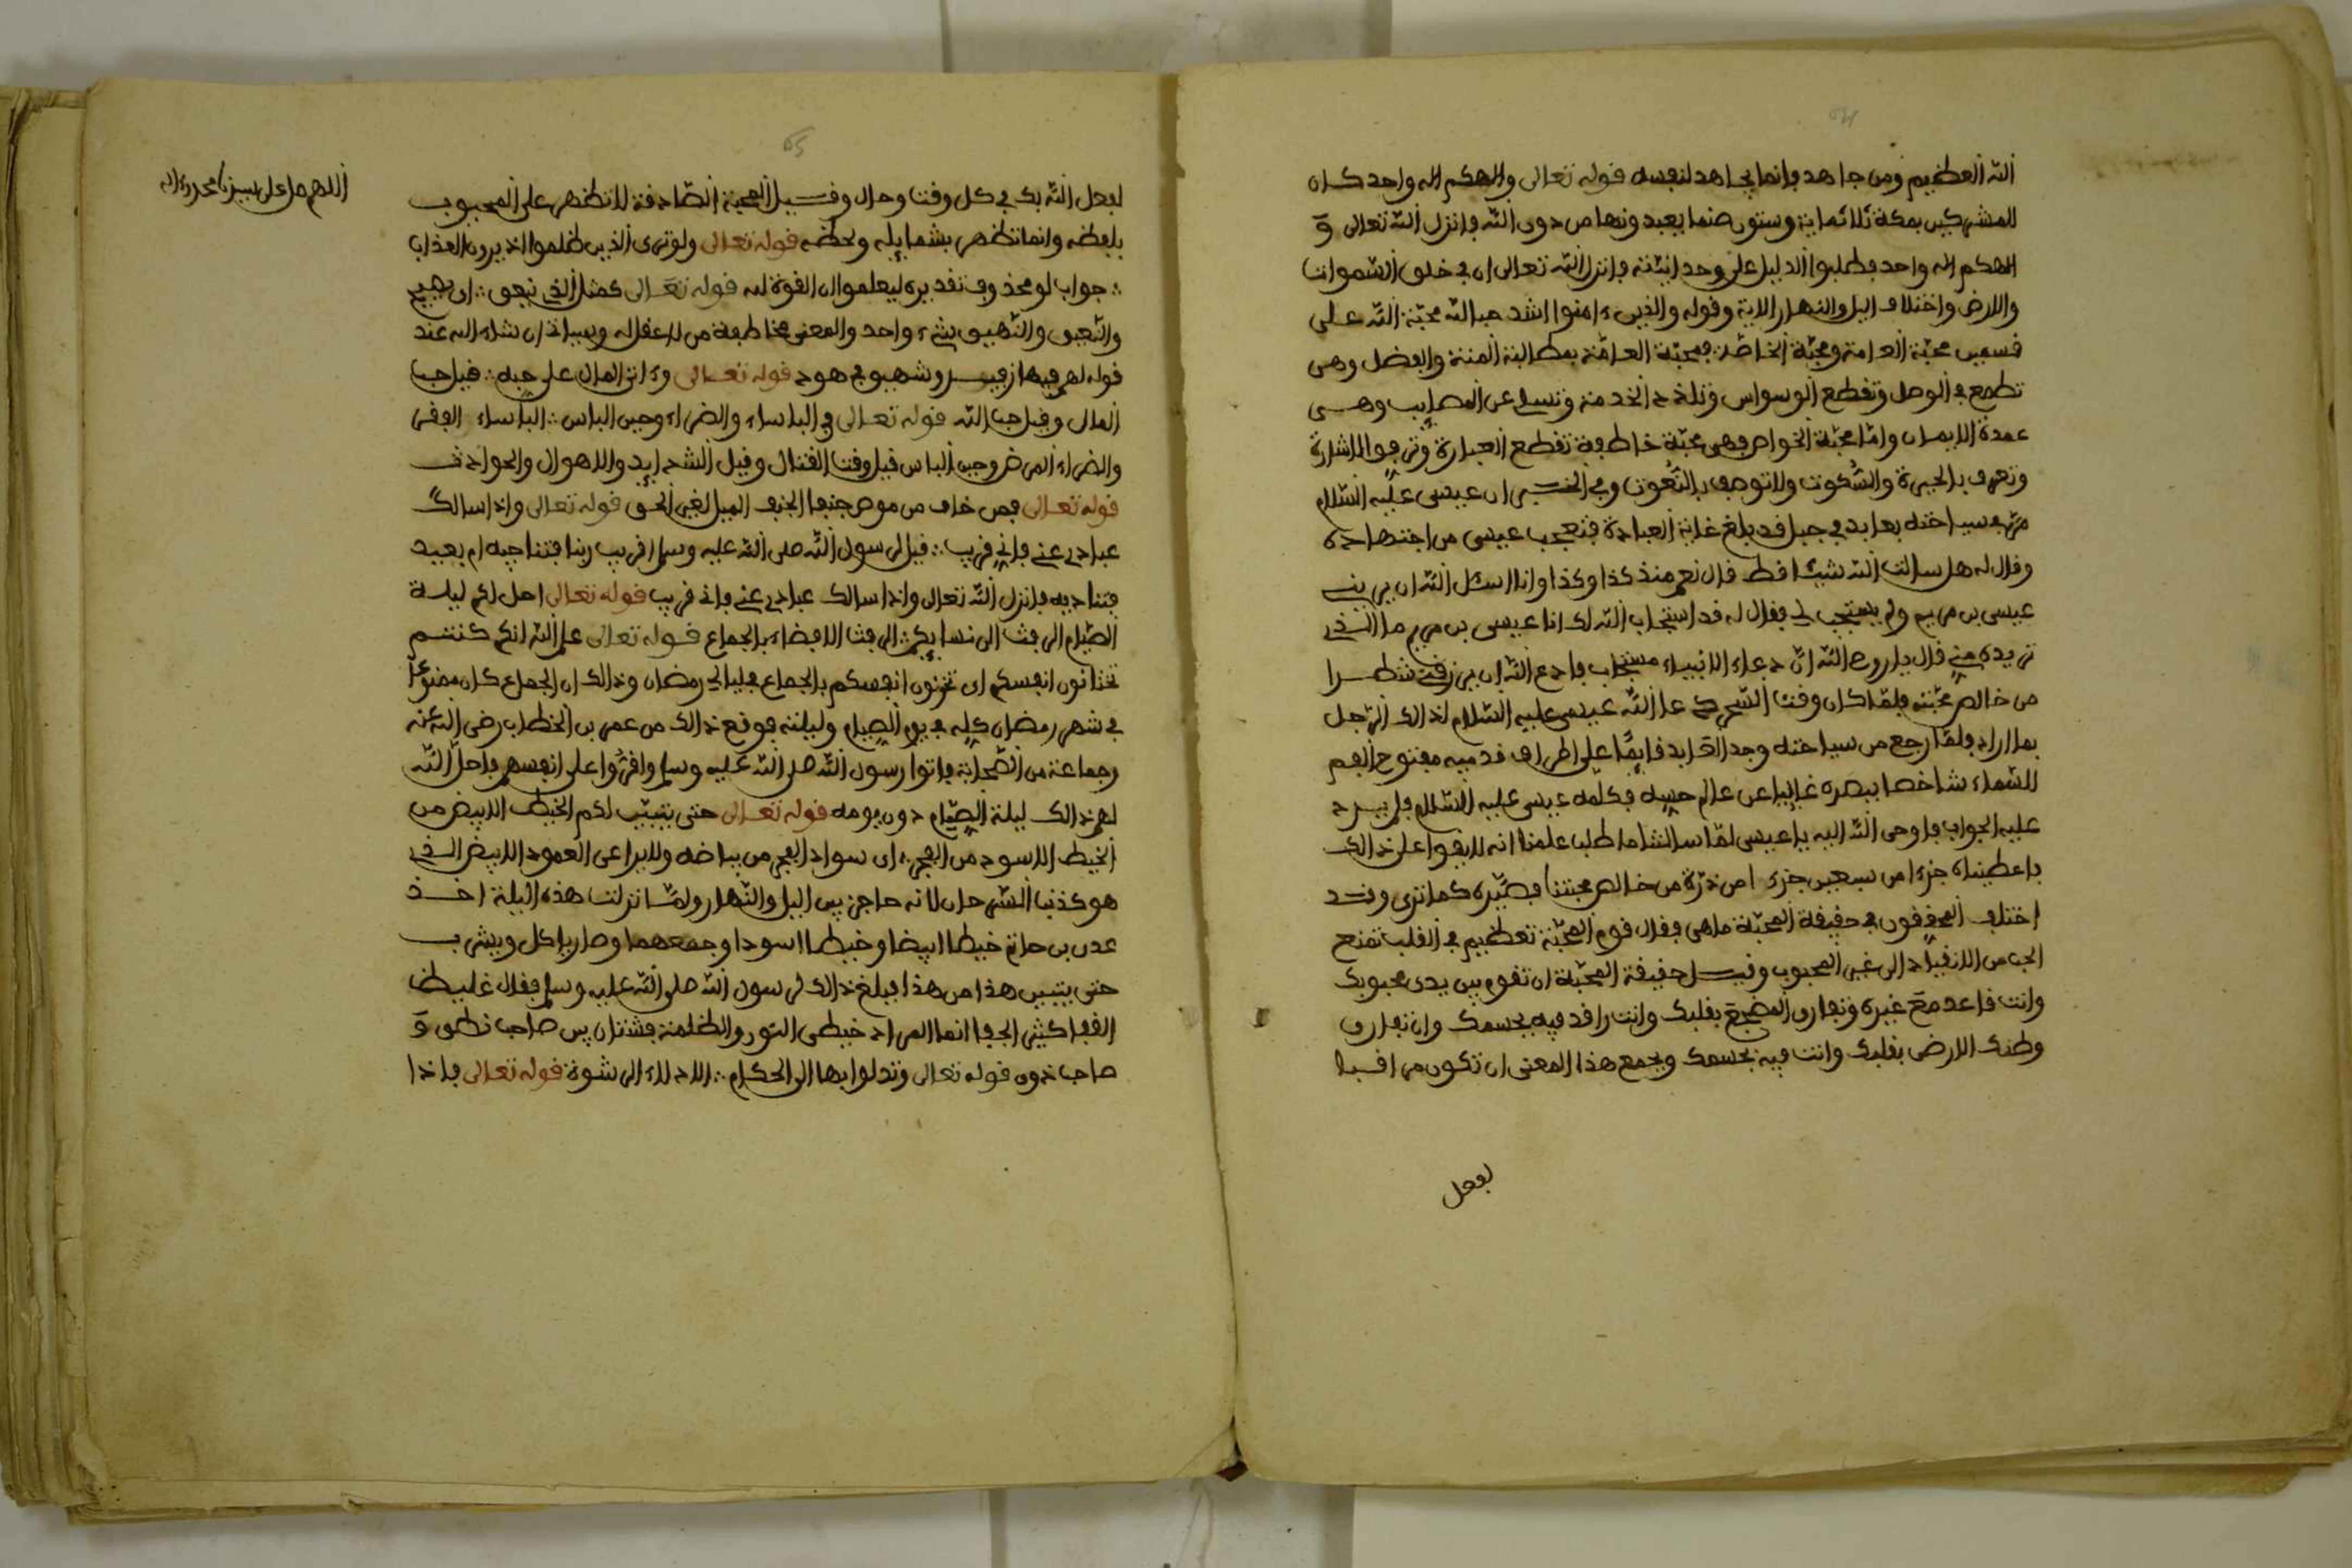 الله العظيم ومن جاهد فانما يجاهد لنفسه قوله تعالى والهكم اله واحد كان
للمشركين بمكة ثلاثماية وستون صنما يعبدونها من دون الله فانزل الله تعالى و
الهكم اله واحد فطلبوا الدليل على وحدانيته فانزل الله تعالى ان في خلق السموات
والارض واختلاف اليل والنهار الاية وقوله والذين ءامنوا اشد حبا لله محبة الله على
قسمين محبة العامة ومحبة الخاصة فمحبة العامة بمطالبة المنة والفضل وهي
تطمع في الوصل وتقطع الوسواس وتلذذ الخدمة وتسلي عن المصايب وهي
عمدة الايمان واما محبة الخواص فهي محبة خاطفة تقطع العبارة وترفع الاشارة
وتعرف بالحيرة والسكوت ولا توصف بالنعوت وفي الخبر ان عيسى عليه السلام
مر في سياحته بعابد في جبل قد بلغ غاية العبادة فتعجب عيسى من اجتهاده
وقال له هل سالت الله شيئا قط قال نعم منذ كذا وكذا وانا اسئل الله ان يريني
عيسى بن مريم ولم يستجب لي فقال له قد استجاب الله لك انا عيسى بن مريم ما الذي
تريده مني قال يا روح الله ان دعاء الانبياء مستجاب فادع الله ان يرزقني شطرا
من خالص محبته فلما كان وقت السحر دعا الله عيسى عليه السلام لذالك الرجل
بما اراد فلما رجع من سياحته وجد العابد قايما على اطراف قدميه مفتوح الفم
للسماء شاخصا ببصره غايبا عن عالم حسه فكلمه عيسى عليه السلام فلم يرد
عليه الجواب فاوحى الله اليه يا عيسى لما سالتنا ما طلب علمنا انه لا يقوا على ذالك
فاعطيناه جزءا من سبعين جزءا من ذرة من خالص محبتنا فصيره كما ترى وقد
اختلف المحققون في حقيقة المحبة ما هي فقال قوم المحبة تعظيم في القلب تمنع
الحب من الانقياد الى غير المحبوب وقيل حقيقة المحبة ان تقوم بين يدي محبوبك
وانت قاعد مع غيره وتفارق المضجع بقلبك وانت راقد فيه بجسمك وان تفارق
وطنك الارض بقلبك وانت فيه بجسمك ويجمع هذا المعنى ان تكون من اقبا
لفعل
لفعل الله بك في كل وقت وحال وقيل المحبة الصادقة لا تظهر على المحبوب
بلفظه وانما تظهر بشمايله ولحظه قوله تعالى ولو ترى الذين ظلموا اذ يرون العذاب
جواب لو محذوف تقديره ليعلموا ان القوة لله قوله تعالى كمثل الذي ينعق اي يصيح
والنعيق والنهيق شيء واحد والمعنى مخاطبة من لا عقل له وسياتي ان شاء الله عند
قوله لهم فيها زفير وشهيق في هود قوله تعالى وءاتى المال على حبه قيل حب
المال وقيل حب الله قوله تعالى في الباساء والضراء وحين الباس الباساء الفقر
والضراء المرض وحين الباس قيل وقت القتال وقيل الشدايد والاهوال والحوادث
قوله تعالى فمن خاف من موص جنفا الجنف الميل لغير الحق قوله تعالى واذا سالك
عبادي عني فاني قريب قيل لرسول الله صلى الله عليه وسلم اقريب ربنا فنناجيه ام بعيد
فنناديه فانزل الله تعالى واذا سالك عبادي عني فاني قريب قوله تعالى احل لكم ليلة
الصيام الرفث الى نسايكم الرفث الافضاء بالجماع قوله تعالى علم الله انكم كنتم
تختانون انفسكم اي تخونون انفسكم بالجماع في ليالي رمضان وذالك ان الجماع كان ممنوعا
في شهر رمضان كله في يوم الصيام وليلته فوقع ذالك من عمر بن الخطاب رضي الله عنه
وجماعة من الصحابة فاتوا رسول الله صلى الله عليه وسلم واقروا على انفسهم فاحل الله
لهم ذالك ليلة الصيام دون يومه قوله تعالى حتى يتبين لكم الخيط الابيض من
الخيط الاسود من الفجر اي سواد الفجر من بياضه ولا يراعى العمود الابيض الذي
هو كذنب السرحان لانه حاجز بين اليل والنهار ولما نزلت هذه الليلة اخذ
عدي بن حاتم خيطا ابيضا وخيطا اسودا وجمعهما وصار ياكل ويشرب
حتى يتبين هذا من هذا فبلغ ذالك لرسول الله صلى الله عليه وسلم فقال غليظ
القفا كثير الجفا انما المراد خيطي النور والظلمة فشتان بين صاحب نطق و
صاحب ذوق قوله تعالى وتدلوا بها الى الحكام الادلاء الرشوة قوله تعالى فاذا
اللهم صل على سيدنا محمد وءاله